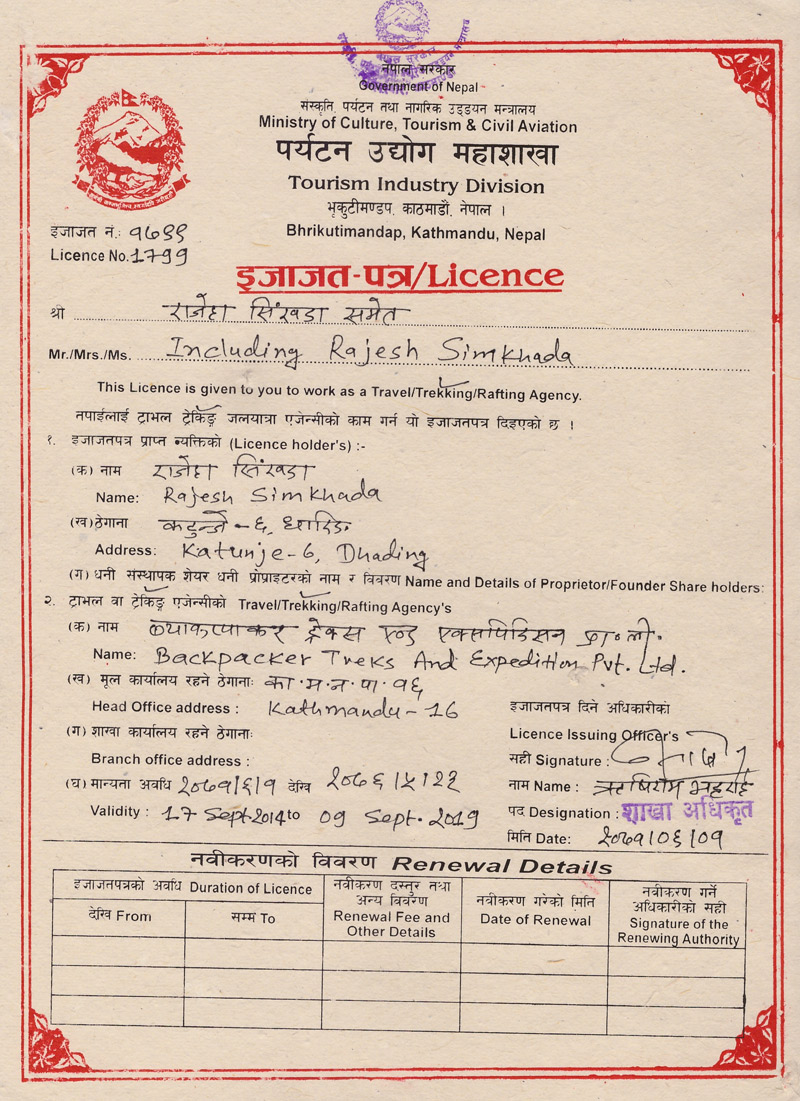 नेपाल सरकार
Government of Nepal
संस्कृति, पर्यटन तथा नागरिक उड्डयन मन्त्रालय
Ministry of Culture, Tourism & Civil Aviation
पर्यटन उद्योग महाशाखा
Tourism Industry Division
भृकुटीमण्डप, काठमाडौं, नेपाल ।
Bhrikutimandap, Kathmandu, Nepal
इजाजत नं.: १७९९
Licence No. 1799
इजाजत-पत्र/Licence
श्री राजेश सिंखडा समेत
Mr./Mrs./Ms. Including Rajesh Simkhada
This Licence is given to you to work as a Travel/Trekking/Rafting Agency.
तपाईंलाई ट्राभल ट्रेकिङ्ग जलयात्रा एजेन्सीको काम गर्न यो इजाजतपत्र दिइएको छ ।
१. इजाजतपत्र प्राप्त व्यक्तिको (Licence holder's) :-
(क) नाम राजेश सिंखडा
Name: Rajesh Simkhada
(ख) ठेगाना कटुन्जे - ६, धादिङ
Address: Katunje-6, Dhading
(ग) धनी संस्थापक शेयर धनी प्रोप्राइटरको नाम र विवरण Name and Details of Proprietor/Founder Share holders:
२. ट्राभल वा ट्रेकिङ्ग एजेन्सीको Travel/Trekking/Rafting Agency's
(क) नाम ब्याकप्याकर ट्रेक्स एण्ड एक्सपिडिसन प्रा. ली.
Name: Backpacker Treks And Expedition Pvt. Ltd.
(ख) मूल कार्यालय रहने ठेगानाः का.म.न.पा. १६
Head Office address : Kathmandu - 16
(ग) शाखा कार्यालय रहने ठेगानाः
Branch office address :
(घ) मान्यता अवधि २०७१/६/१ देखि २०७६/५/२३
Validity : 17 Sept. 2014 to 09 Sept. 2019
इजाजतपत्र दिने अधिकारीको
Licence Issuing Officer's
सही Signature :
नाम Name : ऋषिराम भट्टराई
पद Designation : शाखा अधिकृत
मिति Date: २०७१/०६/०१
नवीकरणको विवरण Renewal Details
इजाजतपत्रको अवधि Duration of Licence
देखि From
सम्म To
नवीकरण दस्तुर तथा
अन्य विवरण
Renewal Fee and
Other Details
नवीकरण गरेको मिति
Date of Renewal
नवीकरण गर्ने
अधिकारीको सही
Signature of the
Renewing Authority